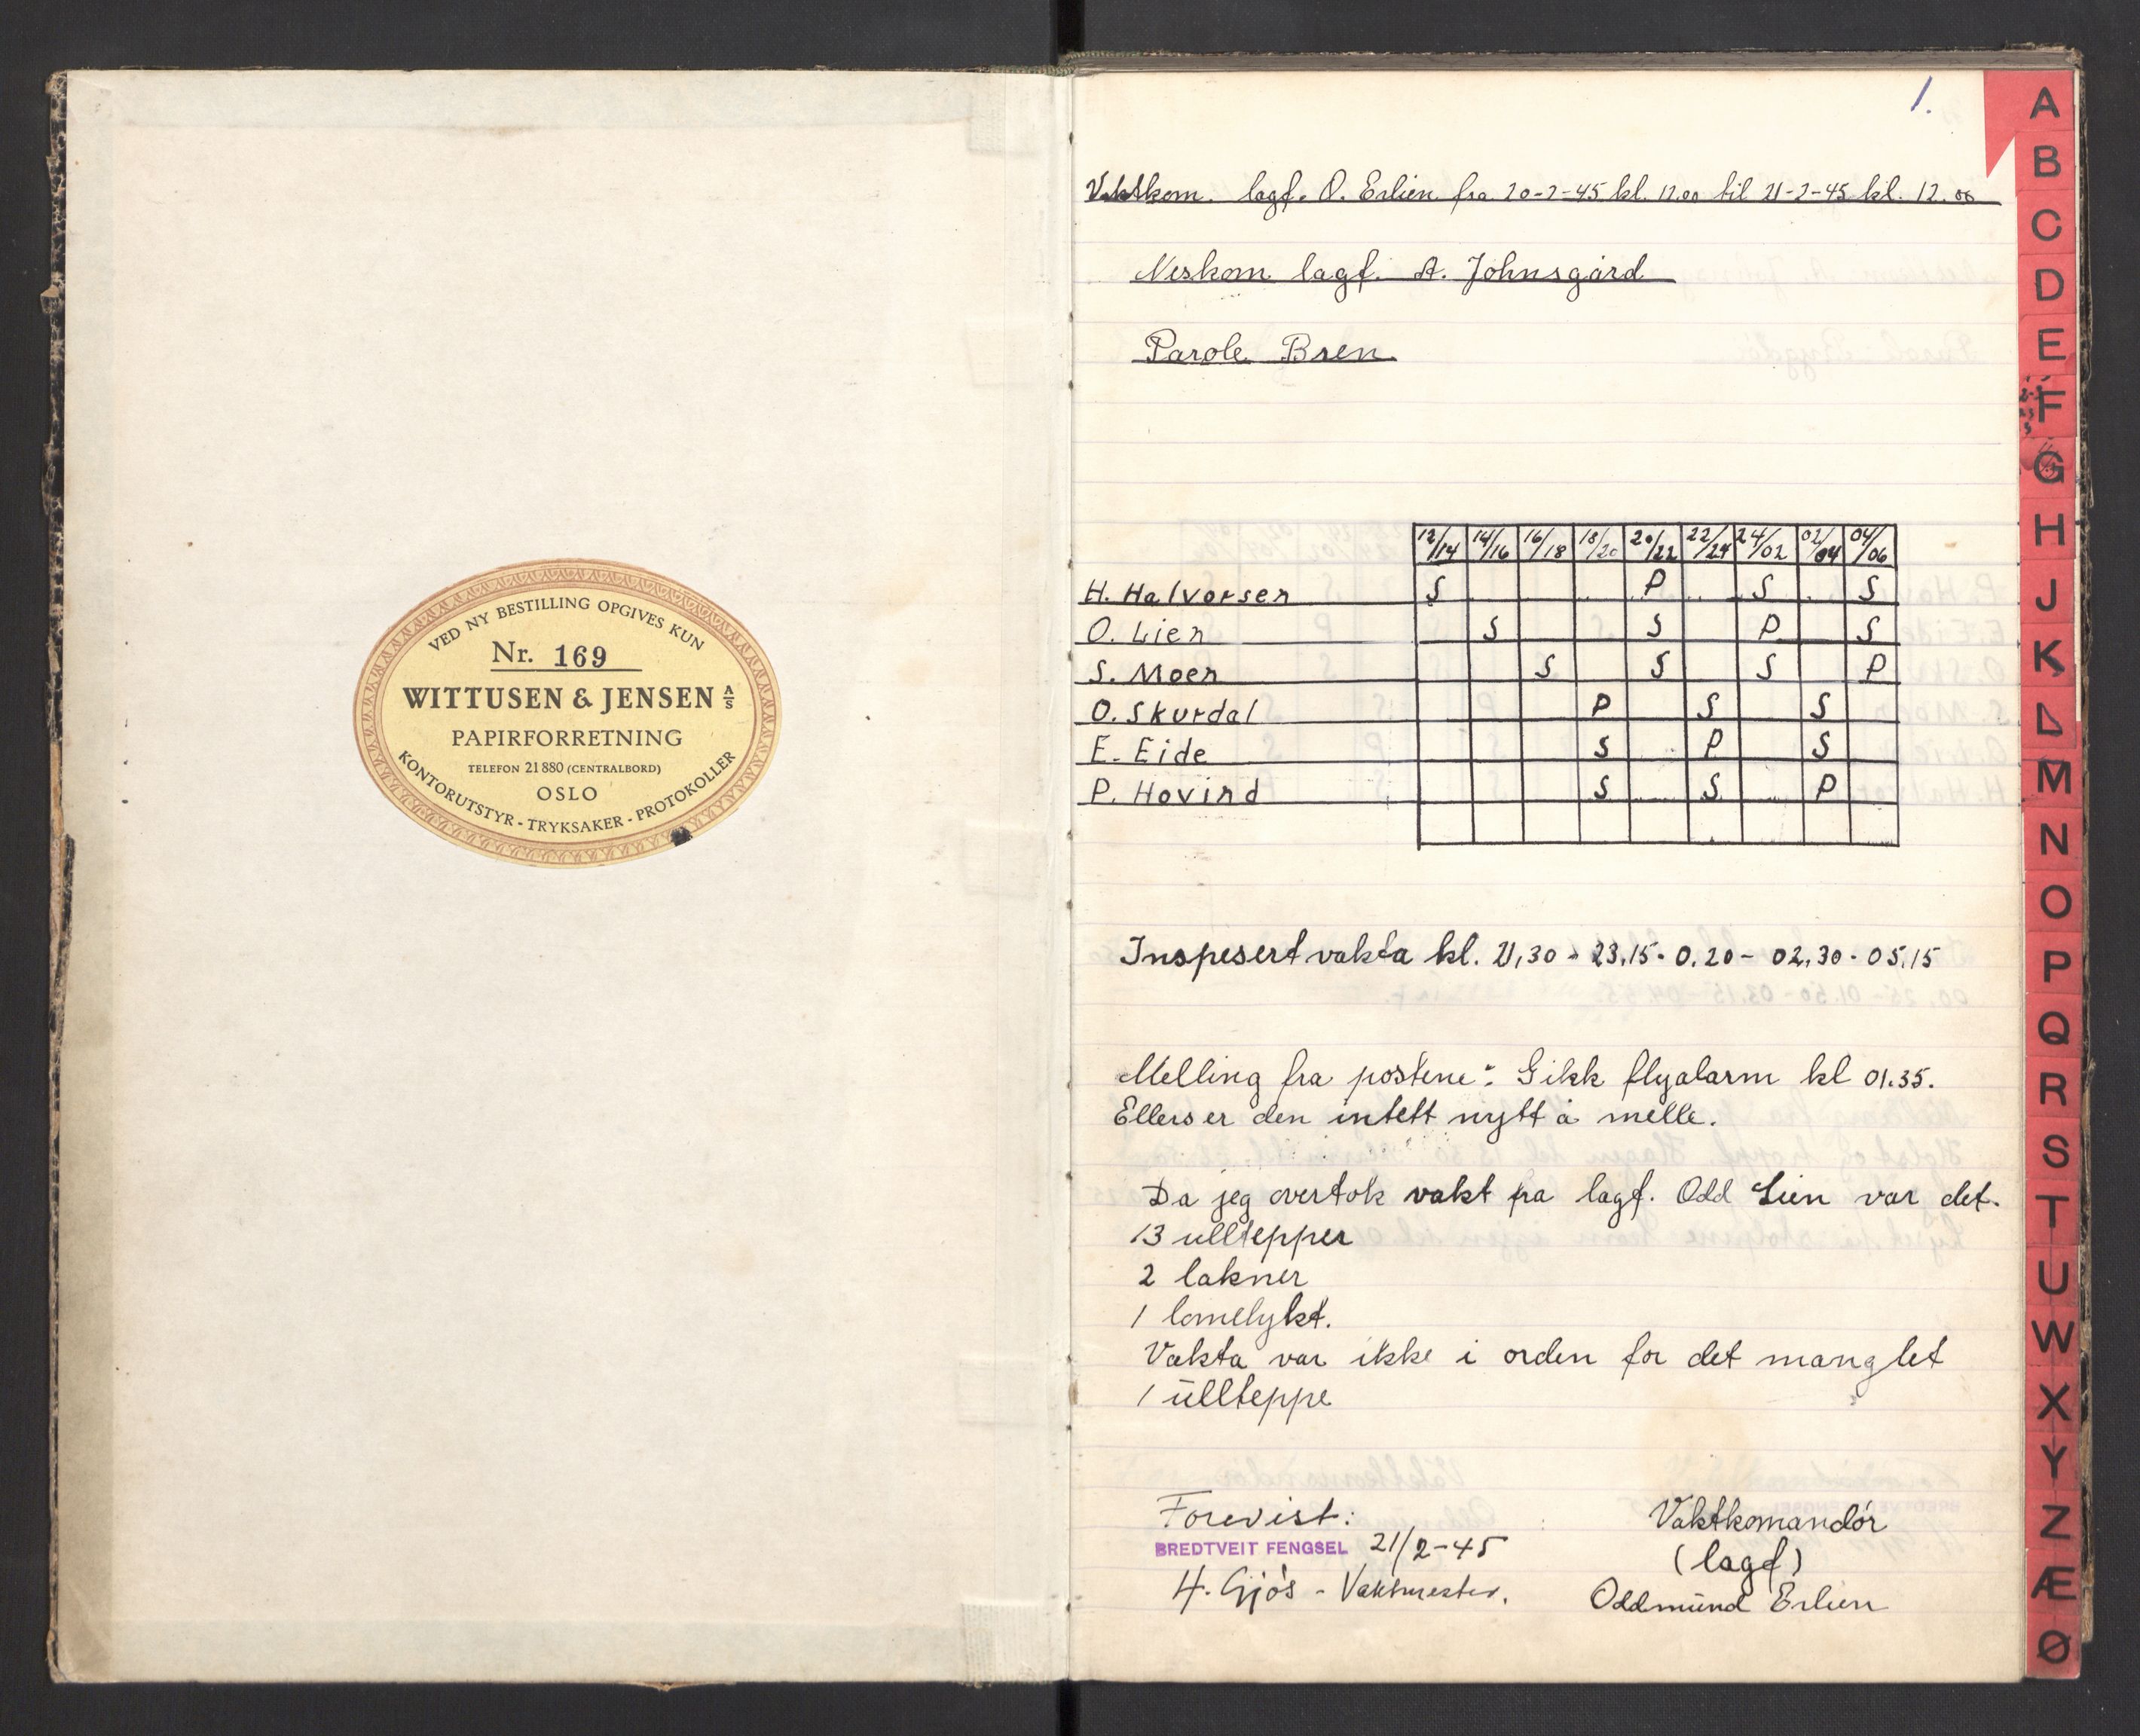 VED NY BESTILLING OPGIVES KUN
Nr. 169
WITTUSEN & JENSEN A/S
PAPIRFORRETNING
TELEFON 21 880 (CENTRALBORD)
OSLO
KONTORUTSTYR - TRYKSAKER - PROTOKOLLER
1.
Vaktkom. lagf. O. Erlien fra 20-2-45 kl. 12.00 til 21-2-45 kl. 12.00
Neskom lagf. A. Johnsgård
Parole Bren
12/14 14/16 16/18 18/20 20/22 22/24 24/02 02/04 04/06
H. Halvorsen S P S S
O. Lien S S P S
S. Moen S S S P
O. Skurdal P S S
E. Eide S P S
P. Hovind S S P
Inspesert vakta kl. 21,30 - 23.15 - 0.20 - 02.30 - 05.15
Melling fra postene: Gikk flyalarm kl 01.35.
Ellers er den intett nytt å melle.
Da jeg overtok vakt fra lagf. Odd Lien var det.
13 ulltepper
2 lakner
1 lomelykt.
Vakta var ikke i orden for det manglet
1 ullteppe
Forevist:
BREDTVEIT FENGSEL 21/2-45
H. Gjøs - Vaktmester.
Vaktkomandør
(lagf)
Oddmund Erlien
A
B
C
D
E
F
G
H
J
K
L
M
N
O
P
Q
R
S
T
U
W
X
Y
Z
Æ
Ø